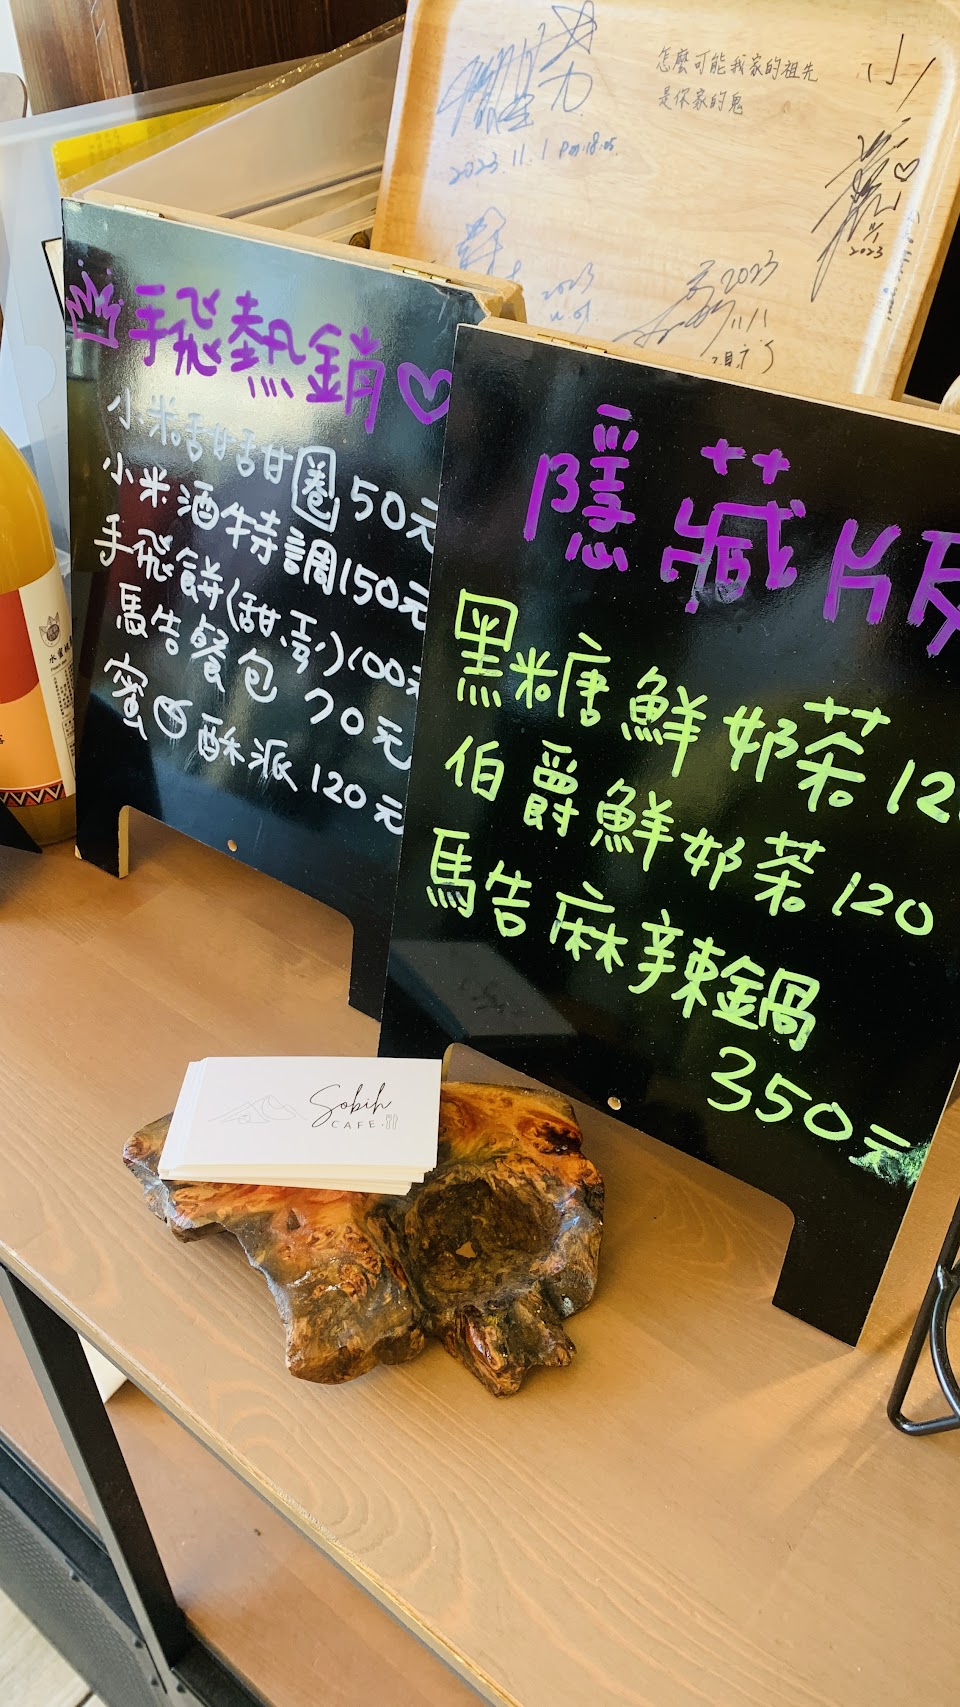 怎麼可能我家的祖先
是你家的鬼
2023.11.1 pm:18:05
2023
2023
11/1
2023
手飛熱銷
小米甜甜圈 50元
小米酒特調150元
手飛餅(甜.鹹)100元
馬告餐包 70元
蜜 酥派 120元
隱藏版
黑糖鮮奶茶 12
伯爵鮮奶茶 120
馬告麻辣鍋
350元
Sobih
CAFE